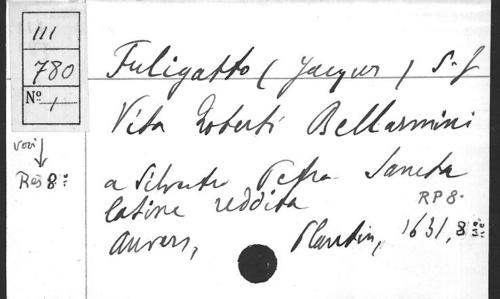 III
780
No 1
voir
Rés 8º:
Fuligatto (Jacques) S.J
Vita Roberti Bellarmini
a Silvestro Petra Sancta
latine reddita
RP 8-
Anvers, Plantin, 1631, 8